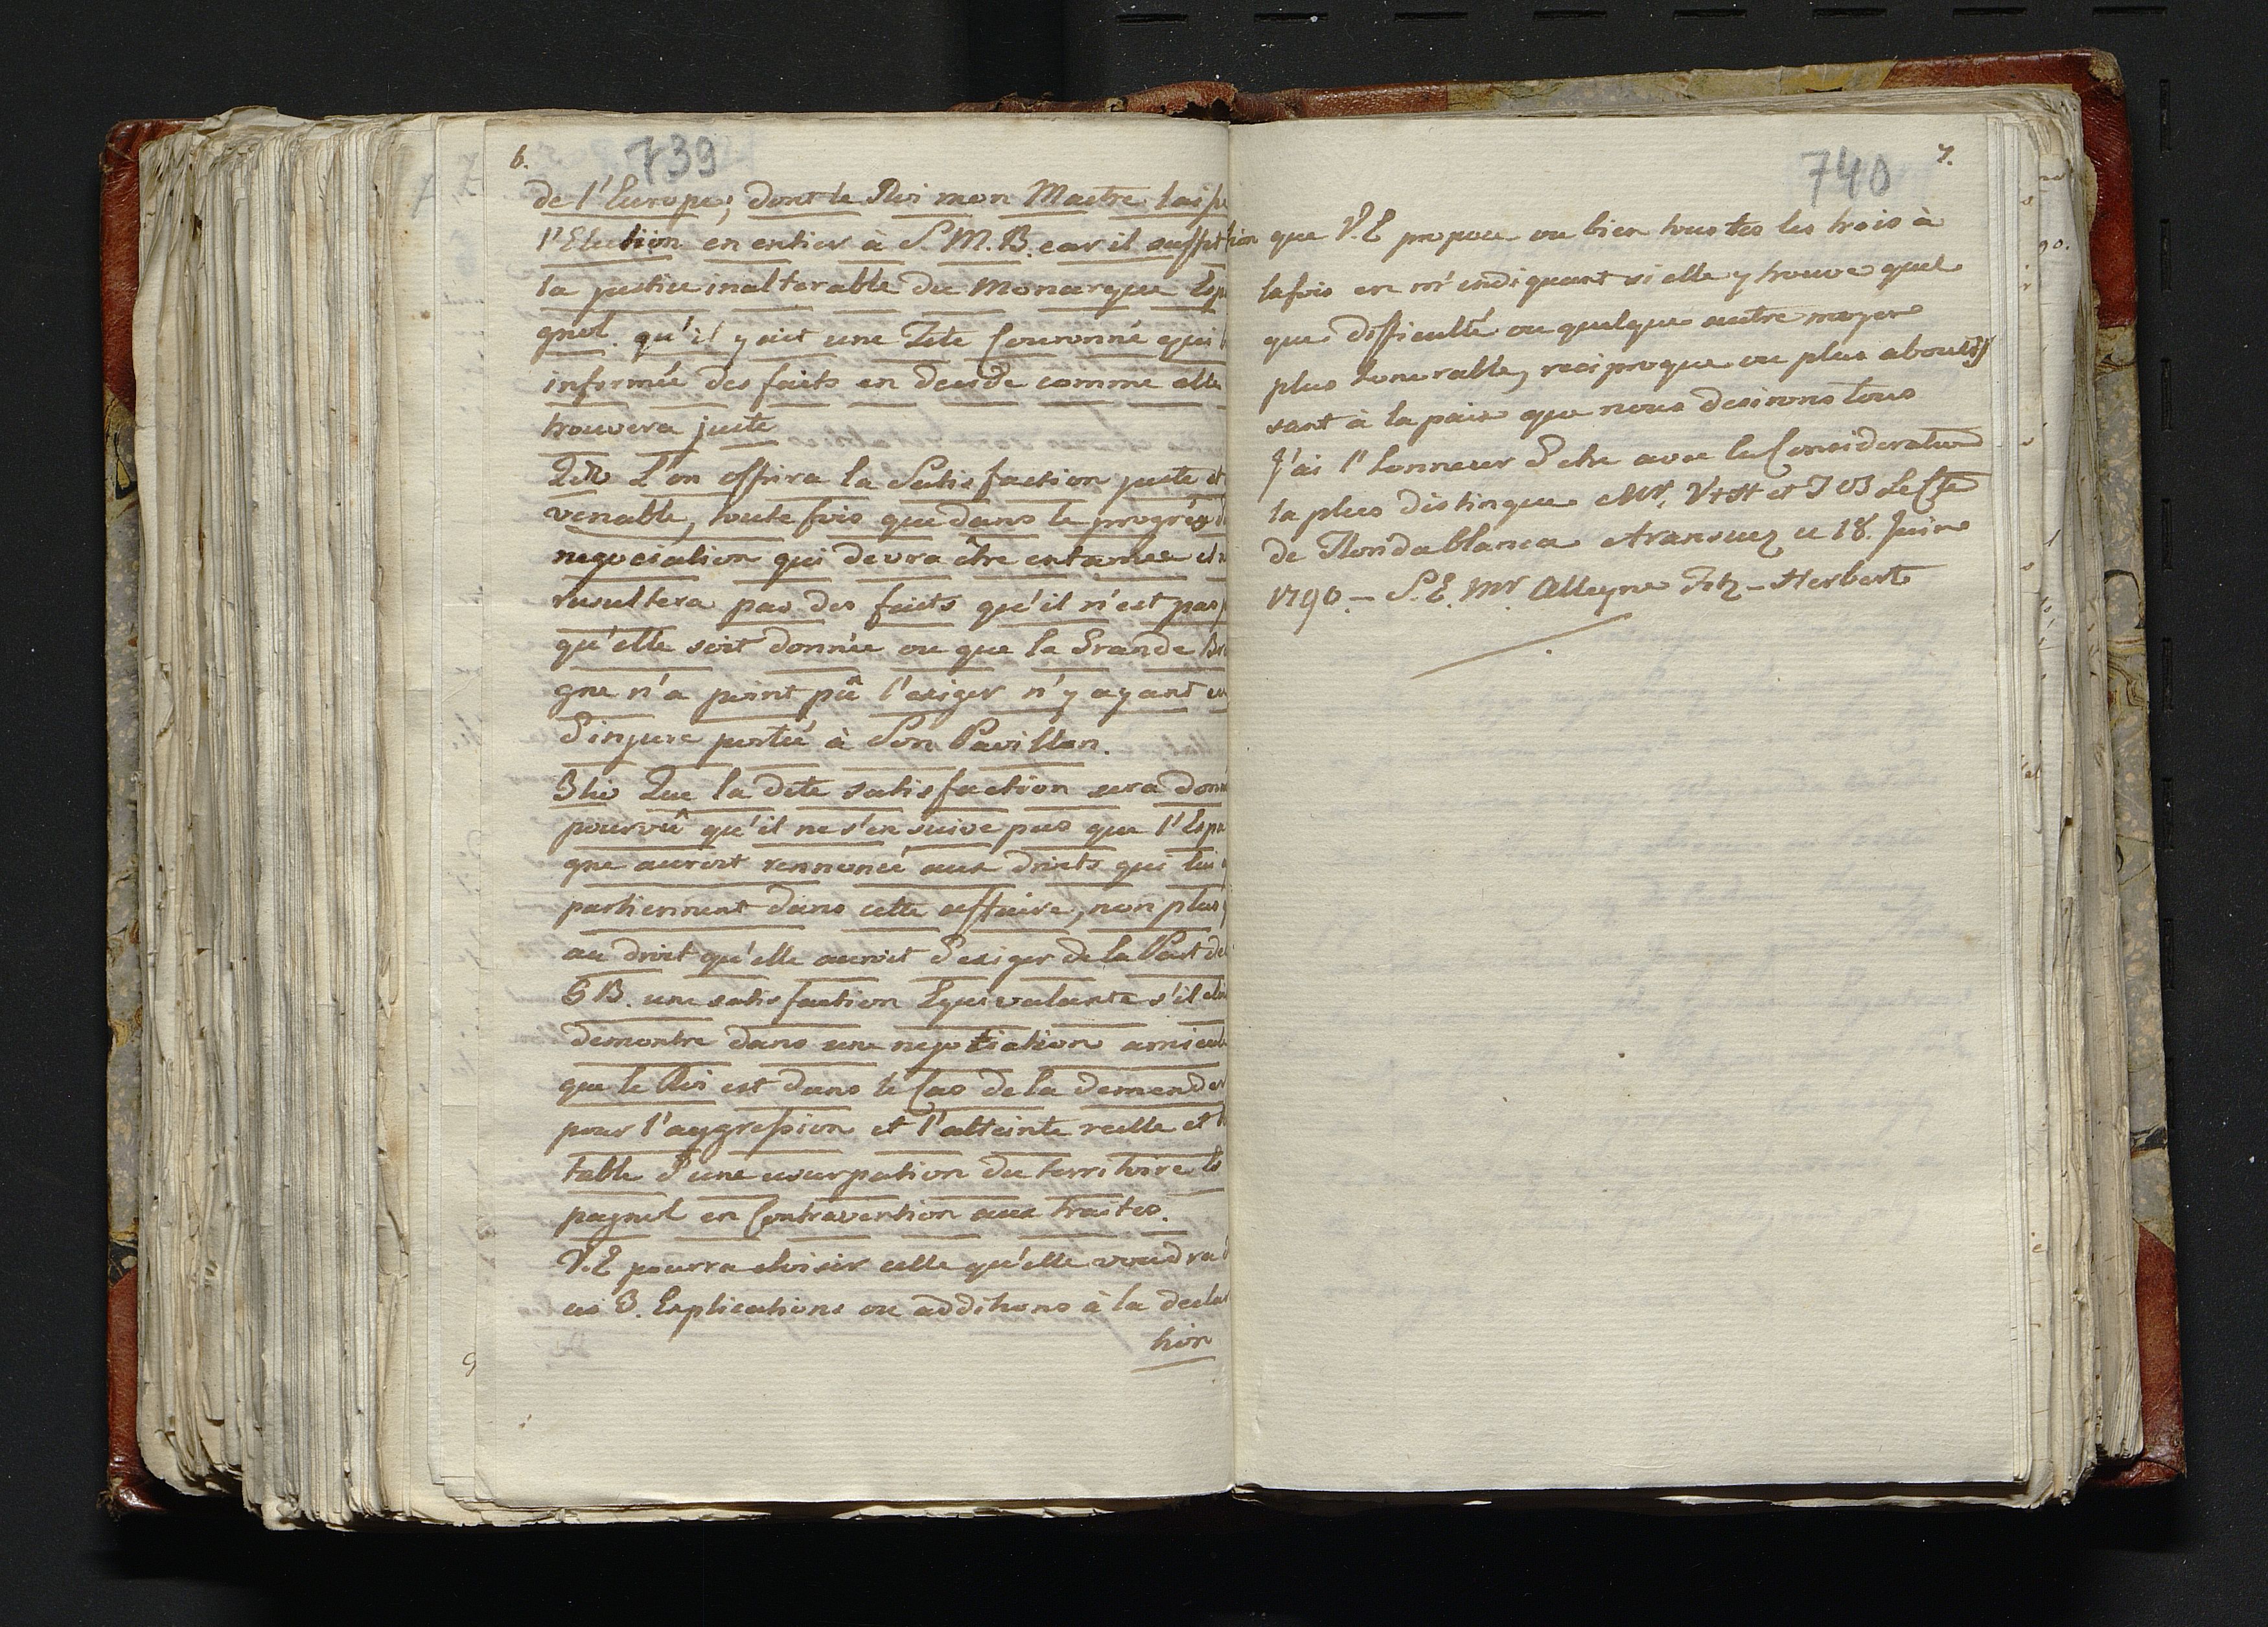 6.
739
de l'Europe; dont le Roi mon Maitre laisse
l'Election en entier à S. M. B. car il suffit
la justice inalterable du Monarque Espa
gnol. qu'il y ait une Tete Couronné qui
informée des faits en decide comme elle
trouvera juste
L'on offrira la Satisfaction juste et
venable, toute fois que dans le progrès
negociation qui devra être entamée il n
resultera pas des faits qu'il n'est pas
qu'elle soit donnée ou que la Grande Bre
gne n'a point pû l'exiger n'y ayant
d'injure portée à Son Pavillon.
3tio Que la dite satisfaction sera donn
pourvû qu'il ne s'en suive pas que l'Espa
gne auroit rennoncé aux droits qui lui
partiennent dans cette affaire, non plus
au droit qu'elle auroit d'exiger de la Part de
G B. une satisfaction Equivalante s'il
demontre dans une negotiation amicale
que le Roi est dans le Cas de la demender
pour l'aggression et l'atteinte reelle et
table d'une usurpation du territoire Es
pagnol en Contravention aux traites.
V. E pourra choisir celle qu'elle voudra
ces 3. Explications ou additions à la decla
tion
740
7.
tion que V. E propose ou bien toutes les trois à
la fois en m'indiquant si elle y trouve quel
que difficulté ou quelque autre moyen
plus honorable, reciproque ou plus aboutis
sant à la paix que nous desirons tous
J'ai l'honneur d'etre avec la Consideration
la plus distingue Mr. V t H et T O B Le Cte
de Floridablanca Aranvez ce 18. Juin
1790. — S. E. Mr Alleyne Fitz-Herbert